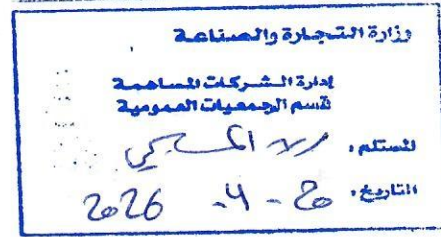 وزارة التجارة والصناعة
إدارة الشركات المساهمة
قسم الجمعيات العمومية
المستلم:
التاريخ: 2026 -4 -